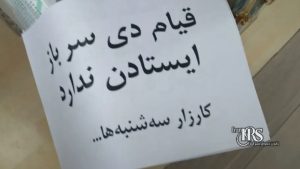 قیام دی سر باز
ایستادن ندارد
کارزار سه‌شنبه‌ها...
IRS